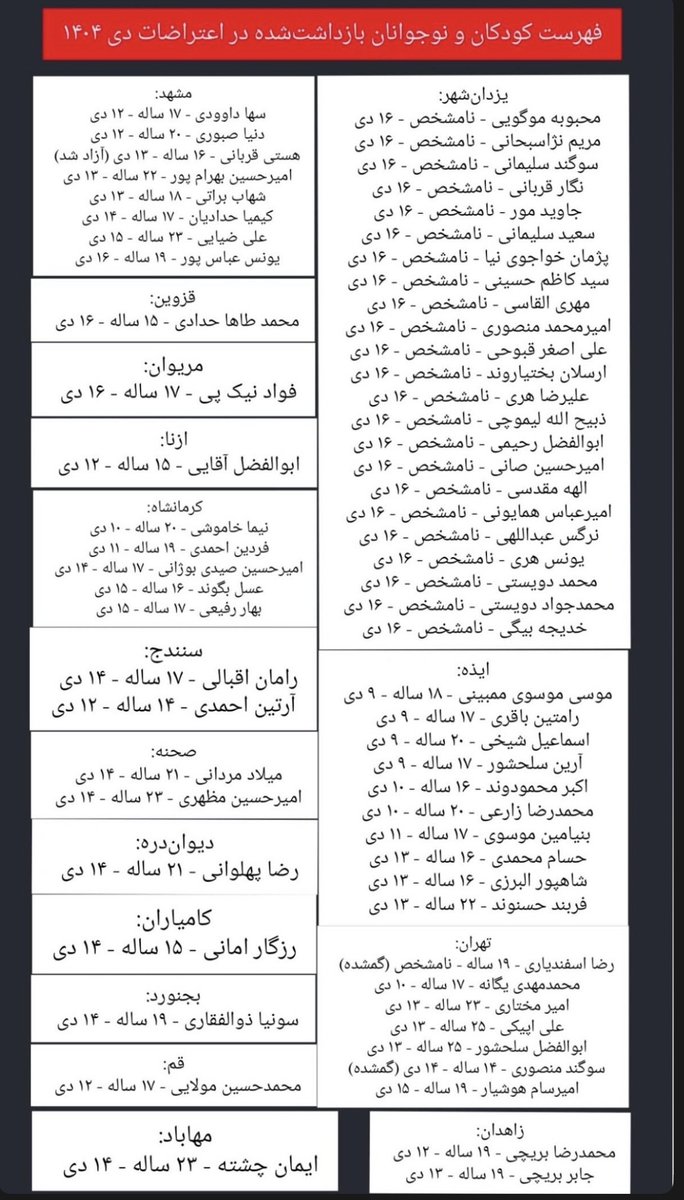 فهرست کودکان و نوجوانان بازداشت‌شده در اعتراضات دی ۱۴۰۴
یزدان‌شهر:
محبوبه موگویی - نامشخص - ۱۶ دی
مریم نژاسبحانی - نامشخص - ۱۶ دی
سوگند سلیمانی - نامشخص - ۱۶ دی
نگار قربانی - نامشخص - ۱۶ دی
جاوید مور - نامشخص - ۱۶ دی
سعید سلیمانی - نامشخص - ۱۶ دی
پژمان خواجوی نیا - نامشخص - ۱۶ دی
سید کاظم حسینی - نامشخص - ۱۶ دی
مهری القاسی - نامشخص - ۱۶ دی
امیرمحمد منصوری - نامشخص - ۱۶ دی
علی اصغر قبوحی - نامشخص - ۱۶ دی
ارسلان بختیاروند - نامشخص - ۱۶ دی
علیرضا هری - نامشخص - ۱۶ دی
ذبیح الله لیموچی - نامشخص - ۱۶ دی
ابوالفضل رحیمی - نامشخص - ۱۶ دی
امیرحسین صانی - نامشخص - ۱۶ دی
الهه مقدسی - نامشخص - ۱۶ دی
امیرعباس همایونی - نامشخص - ۱۶ دی
نرگس عبداللهی - نامشخص - ۱۶ دی
یونس هری - نامشخص - ۱۶ دی
محمد دویستی - نامشخص - ۱۶ دی
محمدجواد دویستی - نامشخص - ۱۶ دی
خدیجه بیگی - نامشخص - ۱۶ دی
ایذه:
موسی موسوی ممبینی - ۱۸ ساله - ۹ دی
رامتین باقری - ۱۷ ساله - ۹ دی
اسماعیل شیخی - ۲۰ ساله - ۹ دی
آرین سلحشور - ۱۷ ساله - ۹ دی
اکبر محمودوند - ۱۶ ساله - ۱۰ دی
محمدرضا زارعی - ۲۰ ساله - ۱۰ دی
بنیامین موسوی - ۱۷ ساله - ۱۱ دی
حسام محمدی - ۱۶ ساله - ۱۳ دی
شاهپور البرزی - ۱۶ ساله - ۱۳ دی
فربند حسنوند - ۲۲ ساله - ۱۳ دی
تهران:
رضا اسفندیاری - ۱۹ ساله - نامشخص (گمشده)
محمدمهدی یگانه - ۱۷ ساله - ۱۰ دی
امیر مختاری - ۲۳ ساله - ۱۳ دی
علی اپیکی - ۲۵ ساله - ۱۳ دی
ابوالفضل سلحشور - ۲۵ ساله - ۱۳ دی
سوگند منصوری - ۱۴ ساله - ۱۴ دی (گمشده)
امیرسام هوشیار - ۱۹ ساله - ۱۵ دی
زاهدان:
محمدرضا بریچی - ۱۹ ساله - ۱۲ دی
جابر بریچی - ۱۹ ساله - ۱۳ دی
مشهد:
سها داوودی - ۱۷ ساله - ۱۲ دی
دنیا صبوری - ۲۰ ساله - ۱۲ دی
هستی قربانی - ۱۶ ساله - ۱۳ دی (آزاد شد)
امیرحسین بهرام پور - ۲۲ ساله - ۱۳ دی
شهاب براتی - ۱۸ ساله - ۱۳ دی
کیمیا حدادیان - ۱۷ ساله - ۱۴ دی
علی ضیایی - ۲۳ ساله - ۱۵ دی
یونس عباس پور - ۱۹ ساله - ۱۶ دی
قزوین:
محمد طاها حدادی - ۱۵ ساله - ۱۶ دی
مریوان:
فواد نیک پی - ۱۷ ساله - ۱۶ دی
ازنا:
ابوالفضل آقایی - ۱۵ ساله - ۱۲ دی
کرمانشاه:
نیما خاموشی - ۲۰ ساله - ۱۰ دی
فردین احمدی - ۱۹ ساله - ۱۱ دی
امیرحسین صیدی بوژانی - ۱۷ ساله - ۱۴ دی
عسل بگوند - ۱۶ ساله - ۱۵ دی
بهار رفیعی - ۱۷ ساله - ۱۵ دی
سنندج:
رامان اقبالی - ۱۷ ساله - ۱۴ دی
آرتین احمدی - ۱۴ ساله - ۱۲ دی
صحنه:
میلاد مردانی - ۲۱ ساله - ۱۴ دی
امیرحسین مظهری - ۲۳ ساله - ۱۴ دی
دیوان‌دره:
رضا پهلوانی - ۲۱ ساله - ۱۴ دی
کامیاران:
رزگار امانی - ۱۵ ساله - ۱۴ دی
بجنورد:
سونیا ذوالفقاری - ۱۹ ساله - ۱۴ دی
قم:
محمدحسین مولایی - ۱۷ ساله - ۱۲ دی
مهاباد:
ایمان چشته - ۲۳ ساله - ۱۴ دی